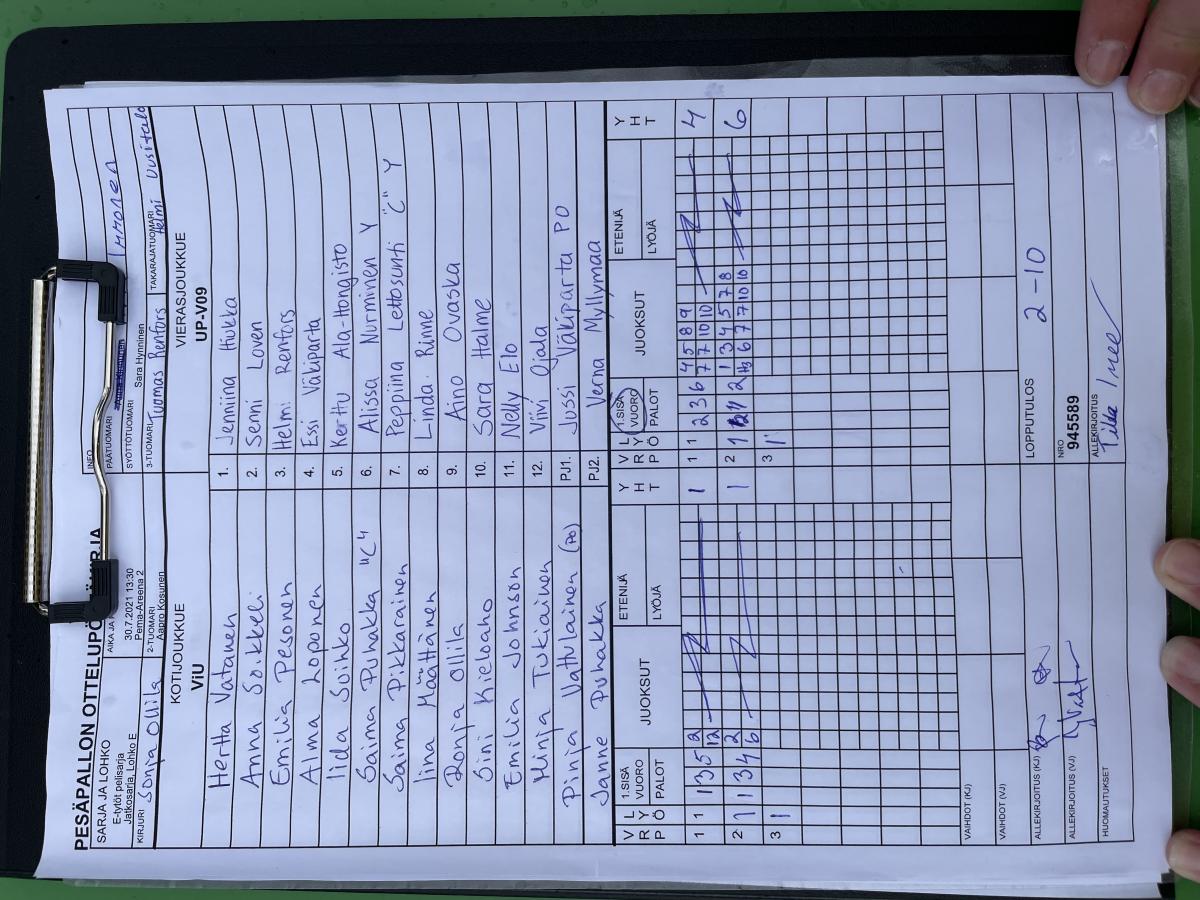 PESÄPALLON OTTELUPÖ
SARJA JA LOHKO
E-tytöt pelisarja
Jatkosarja, Lohko E
AIKA JA
30.7.2021 13:30
Pema-Areena 2
INFO
PÄÄTUOMARI
Immonen
SYÖTTÖTUOMARI
Sara Hynninen
KIRJURI Sonja Ollila
2-TUOMARI
Aapro Kosunen
3-TUOMARI
Tuomas Renfors
TAKARAJATUOMARI
Helmi Uusitalo
KOTIJOUKKUE
ViU
VIERASJOUKKUE
UP-V09
Hertta Vatanen 1. Jenniina Hiukka
Anna Soikkeli 2. Senni Loven
Emilia Pesonen 3. Helmi Renfors
Alma Loponen 4. Essi Väkiparta
Iida Suihko 5. Kerttu Ala-Hongisto
Saima Puhakka "C" 6. Alissa Nurminen Y
Saima Pikkarainen 7. Peppiina Lettosunti "C" Y
Iina Määttänen 8. Linda Rinne
Ronja Ollila 9. Aino Ovaska
Sini Kieloaho 10. Sara Halme
Emilia Johnson 11. Nelly Elo
Minja Tukiainen 12. Viivi Ojala
Pinja Vattulainen (PO) PJ1. Jussi Väkiparta PO
Janne Puhakka PJ2. Verna Myllymaa
V R L Y Ö P 1.SISÄ VUORO PALOT JUOKSUT ETENIJÄ LYÖJÄ Y H T V R L Y Ö P 1.SISÄ VUORO PALOT JUOKSUT ETENIJÄ LYÖJÄ Y H T
1 1 1 3 5 2 1 1 1 2 3 6 4 5 8 9 4
12 7 7 10 10
2 1 1 3 4 2 1 2 1 2 1 3 4 5 7 8 6
6 6 7 7 10 10
3 1 3 1
VAIHDOT (KJ)
VAIHDOT (VJ)
ALLEKIRJOITUS (KJ)
LOPPUTULOS 2 - 10
ALLEKIRJOITUS (VJ)
NRO
945589
HUOMAUTUKSET
ALLEKIRJOITUS